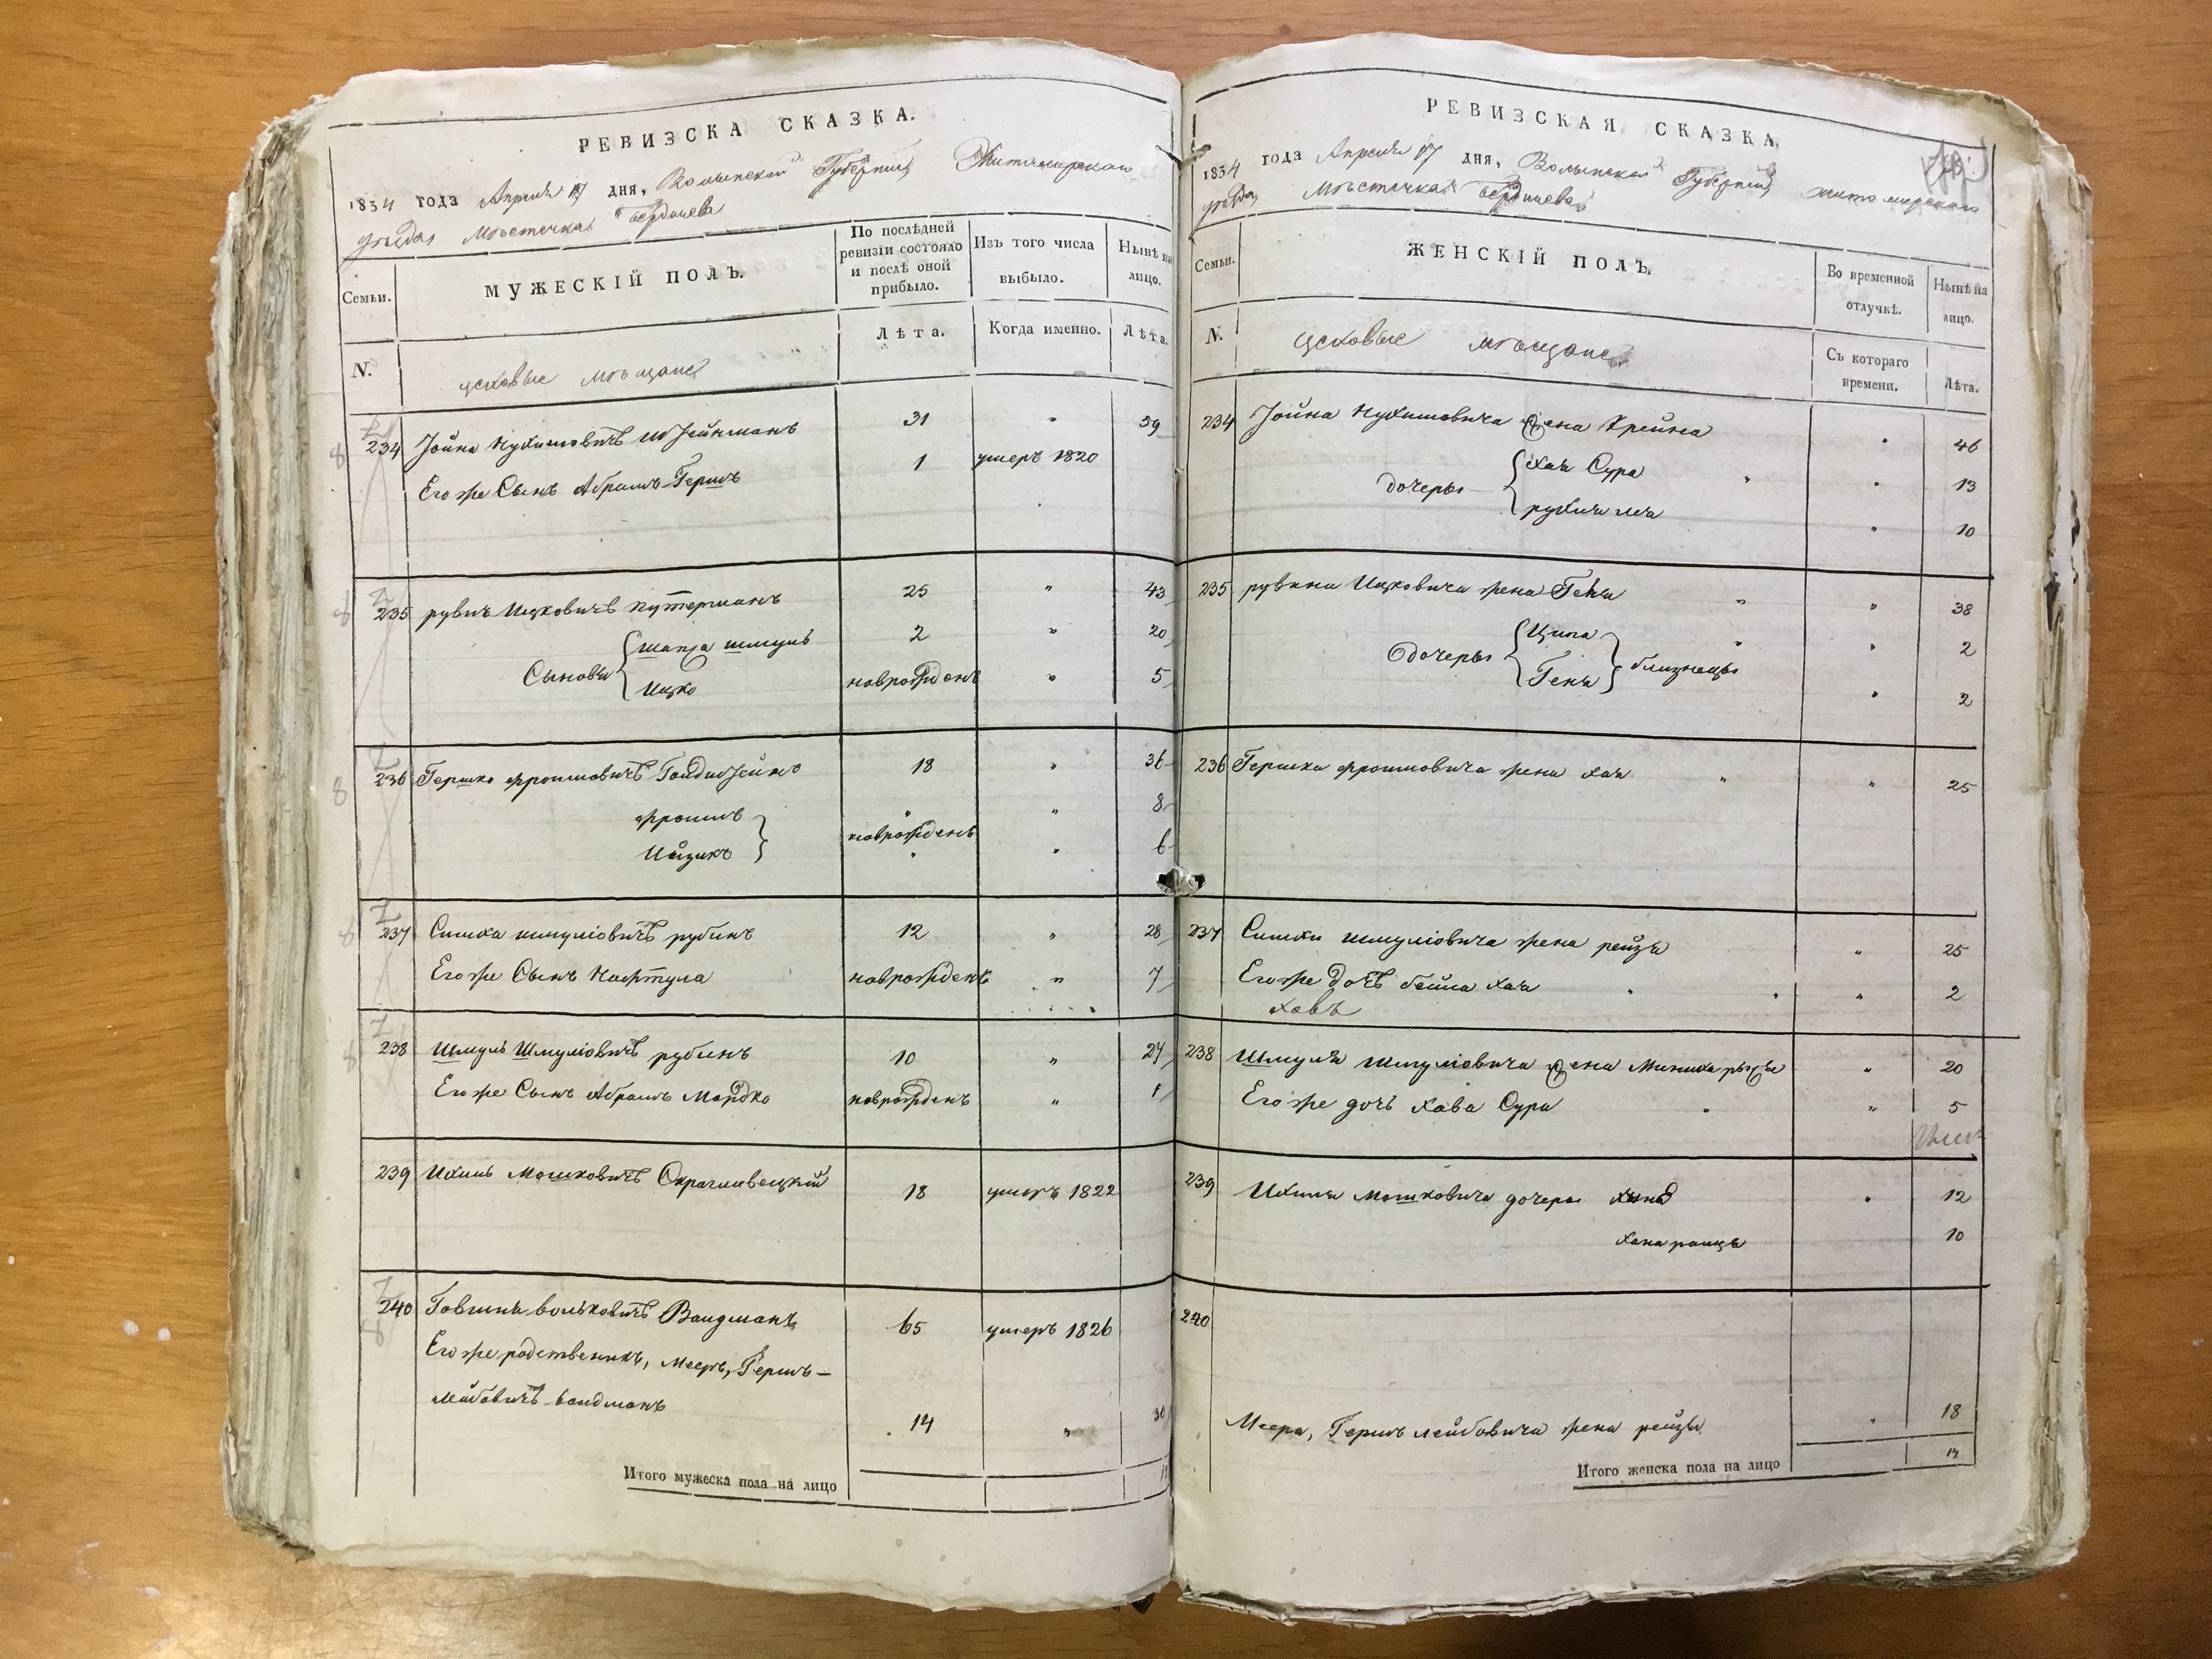 РЕВИЗСКА СКАЗКА.
1834 года Апреля 17 дня, Волынской Губерніи Житомирскаго
уѣзда Мѣстечка Бердичева
Семьи.
МУЖЕСКІЙ ПОЛЪ.
По послѣдней
ревизіи состояло
и послѣ оной
прибыло.
Изъ того числа
выбыло.
Нынѣ на
лицо.
N.
Лѣта.
Когда именно.
Лѣта.
цеховые мѣщане
234 Іойна Нухимовичъ 31 " 59
Его же Сынъ Абрамъ Гершъ 1 умеръ 1820
235 рувинъ Ицковичъ Путерманъ 25 " 43
Сыновья шапса шмуль 2 " 20
Ицко новрожденъ " 5
236 Гершко фроимовичъ 18 " 36
фроимъ " " 8
новрожденъ
Ицикъ " " 6
237 Симха шмуліовичъ рубинъ 12 " 28
Его же Сынъ Нафтула новрожденъ " 7
238 Шмуль Шмуліовичъ рубинъ 10 " 27
Его же Сынъ Абрамъ Мордко новрожденъ " 1
239 Ихиль Мошковичъ 18 умеръ 1822
240 вольковичъ Ваидманъ 65 умеръ 1826
Его же родственникъ, Мееръ, Гершъ-
лейбовичъ ваидманъ
14 " 30
Итого мужеска пола на лицо 11
РЕВИЗСКАЯ СКАЗКА,
1834 года Апреля 17 дня, Волынской Губерніи житомирскаго
уѣзда Мѣстечка Бердичева
Семьи.
ЖЕНСКІЙ ПОЛЪ.
Во временной
отлучкѣ.
Нынѣ на
лицо.
N.
цеховые мѣщане
Съ котораго
времени.
Лѣта.
234 Іойна Нухимовича жена Крейна " 46
дочеры хая Сура " 13
рухля лея " 10
235 рувина Ицковича жена Геня " 38
дочеры Ципа " 2
близнецы
Геня " 2
236 Гершка фроимовича жена хая " 25
237 Симхи шмуліовича жена рейзя " 25
Его же дочь бейла хая " 2
хавъ
238 Шмуля шмуліовича жена " 20
Его же дочь хава Сура " 5
239 Ихиля мошковича дочеры " 12
10
240
Меера, Гершъ лейбовича жена рейзя " 18
Итого женска пола на лицо 14